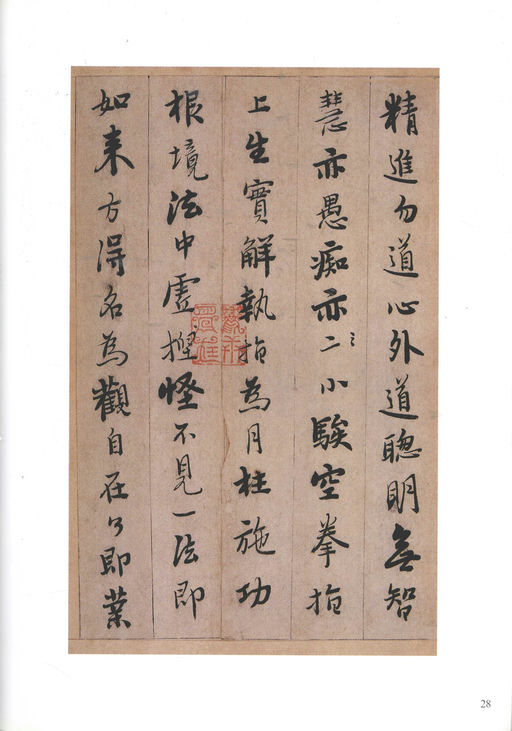 精進勿道心外道聰明無智
慧亦愚痴亦二小騃空拳指
上生實解執指為月枉施功
根境法中虛捏怪不見一法即
如来方得名為觀自在了即業
28